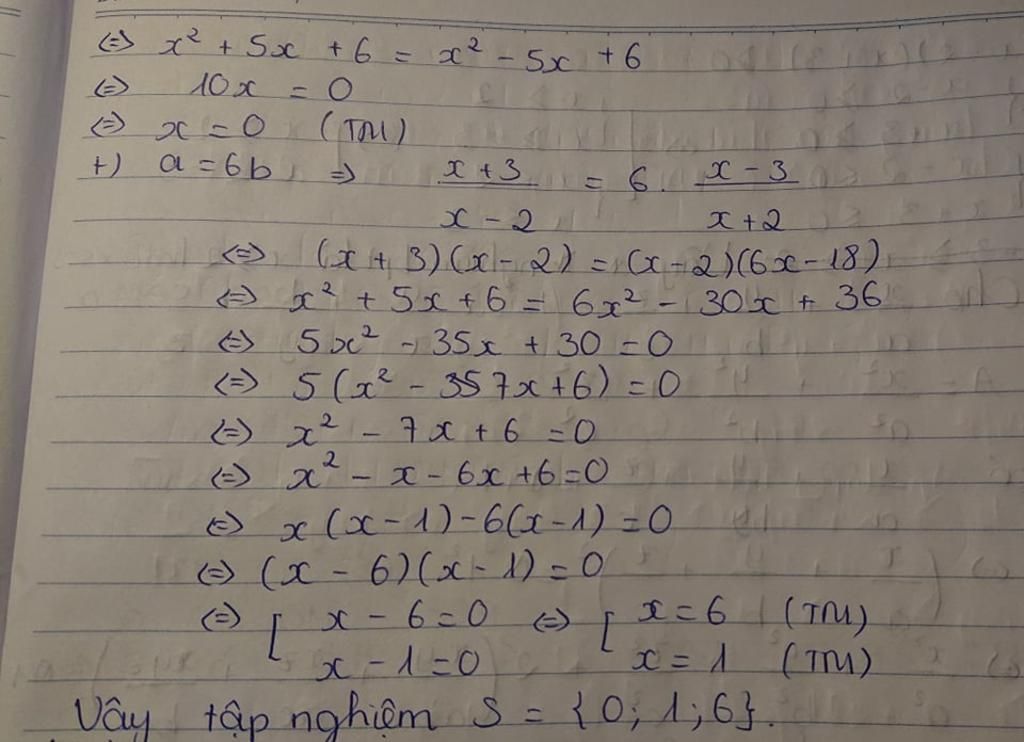 ⇔ x² + 5x + 6 = x² - 5x + 6
⇔ 10x = 0
⇔ x = 0 (TM)
+) a = 6b ⇒ x + 3 / x - 2 = 6. x - 3 / x + 2
⇔ (x + 3)(x - 2) = (x - 2)(6x - 18)
⇔ x² + 5x + 6 = 6x² - 30x + 36
⇔ 5x² - 35x + 30 = 0
⇔ 5(x² - 357x + 6) = 0
⇔ x² - 7x + 6 = 0
⇔ x² - x - 6x + 6 = 0
⇔ x(x - 1) - 6(x - 1) = 0
⇔ (x - 6)(x - 1) = 0
⇔ [ x - 6 = 0 ⇔ [ x = 6 (TM)
x - 1 = 0 x = 1 (TM)
Vây tập nghiệm S = {0; 1; 6}.